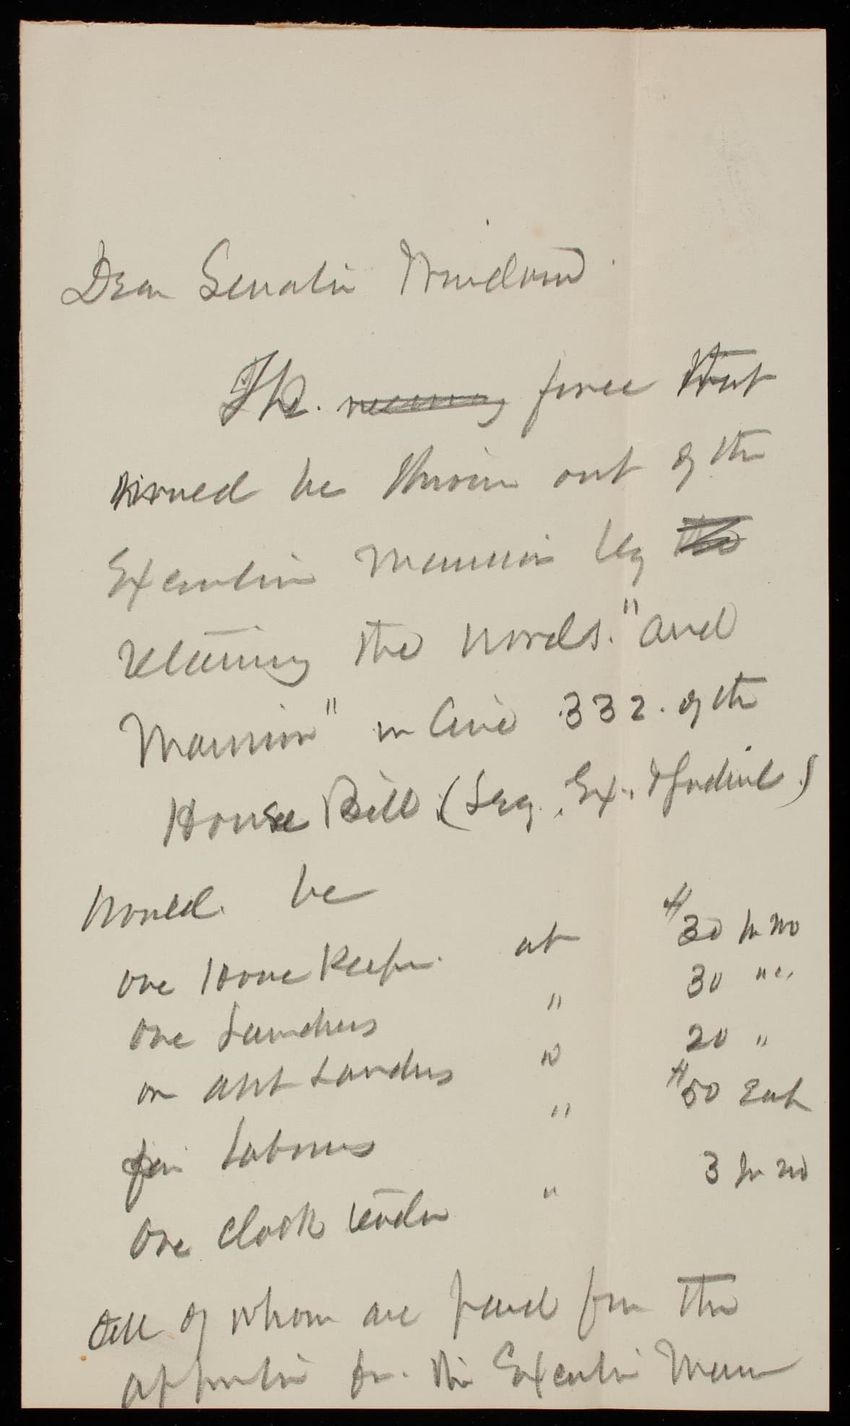 Dear Senator Windom
The necessary force that
would be thrown out of the
Executive Mansion by the
retaining the words. "and
Mansion" in line 332. of the
House Bill (Leg. Ex. & Judicial)
would be
one House Keeper at $30 pr mo
one Laundress " 30 " "
one asst Laundress " 20 "
Laborers " $50 Each
one clock tender " 3 pr mo
all of whom are paid from the
appropriation for the Executive Mansion